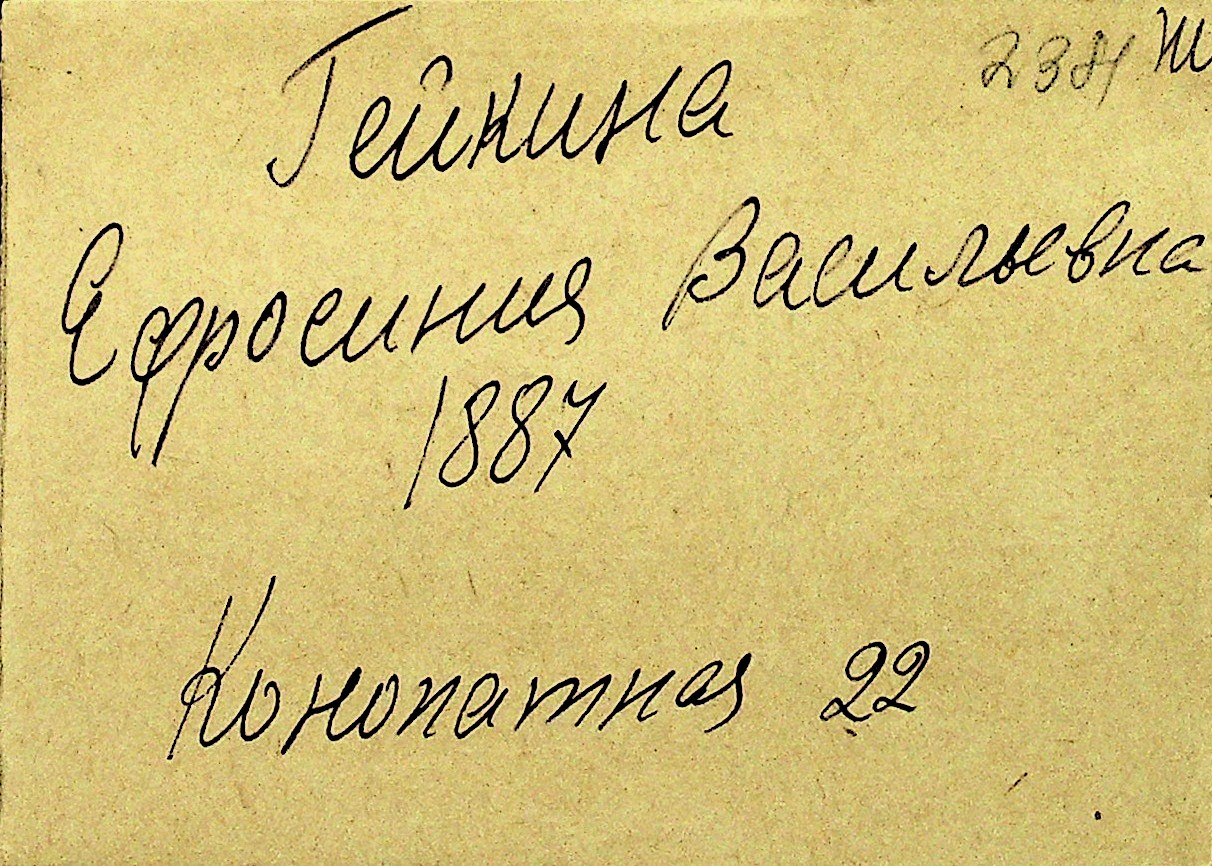 Гейкина
Ефросиния Васильевна
1887
Конопатная 22